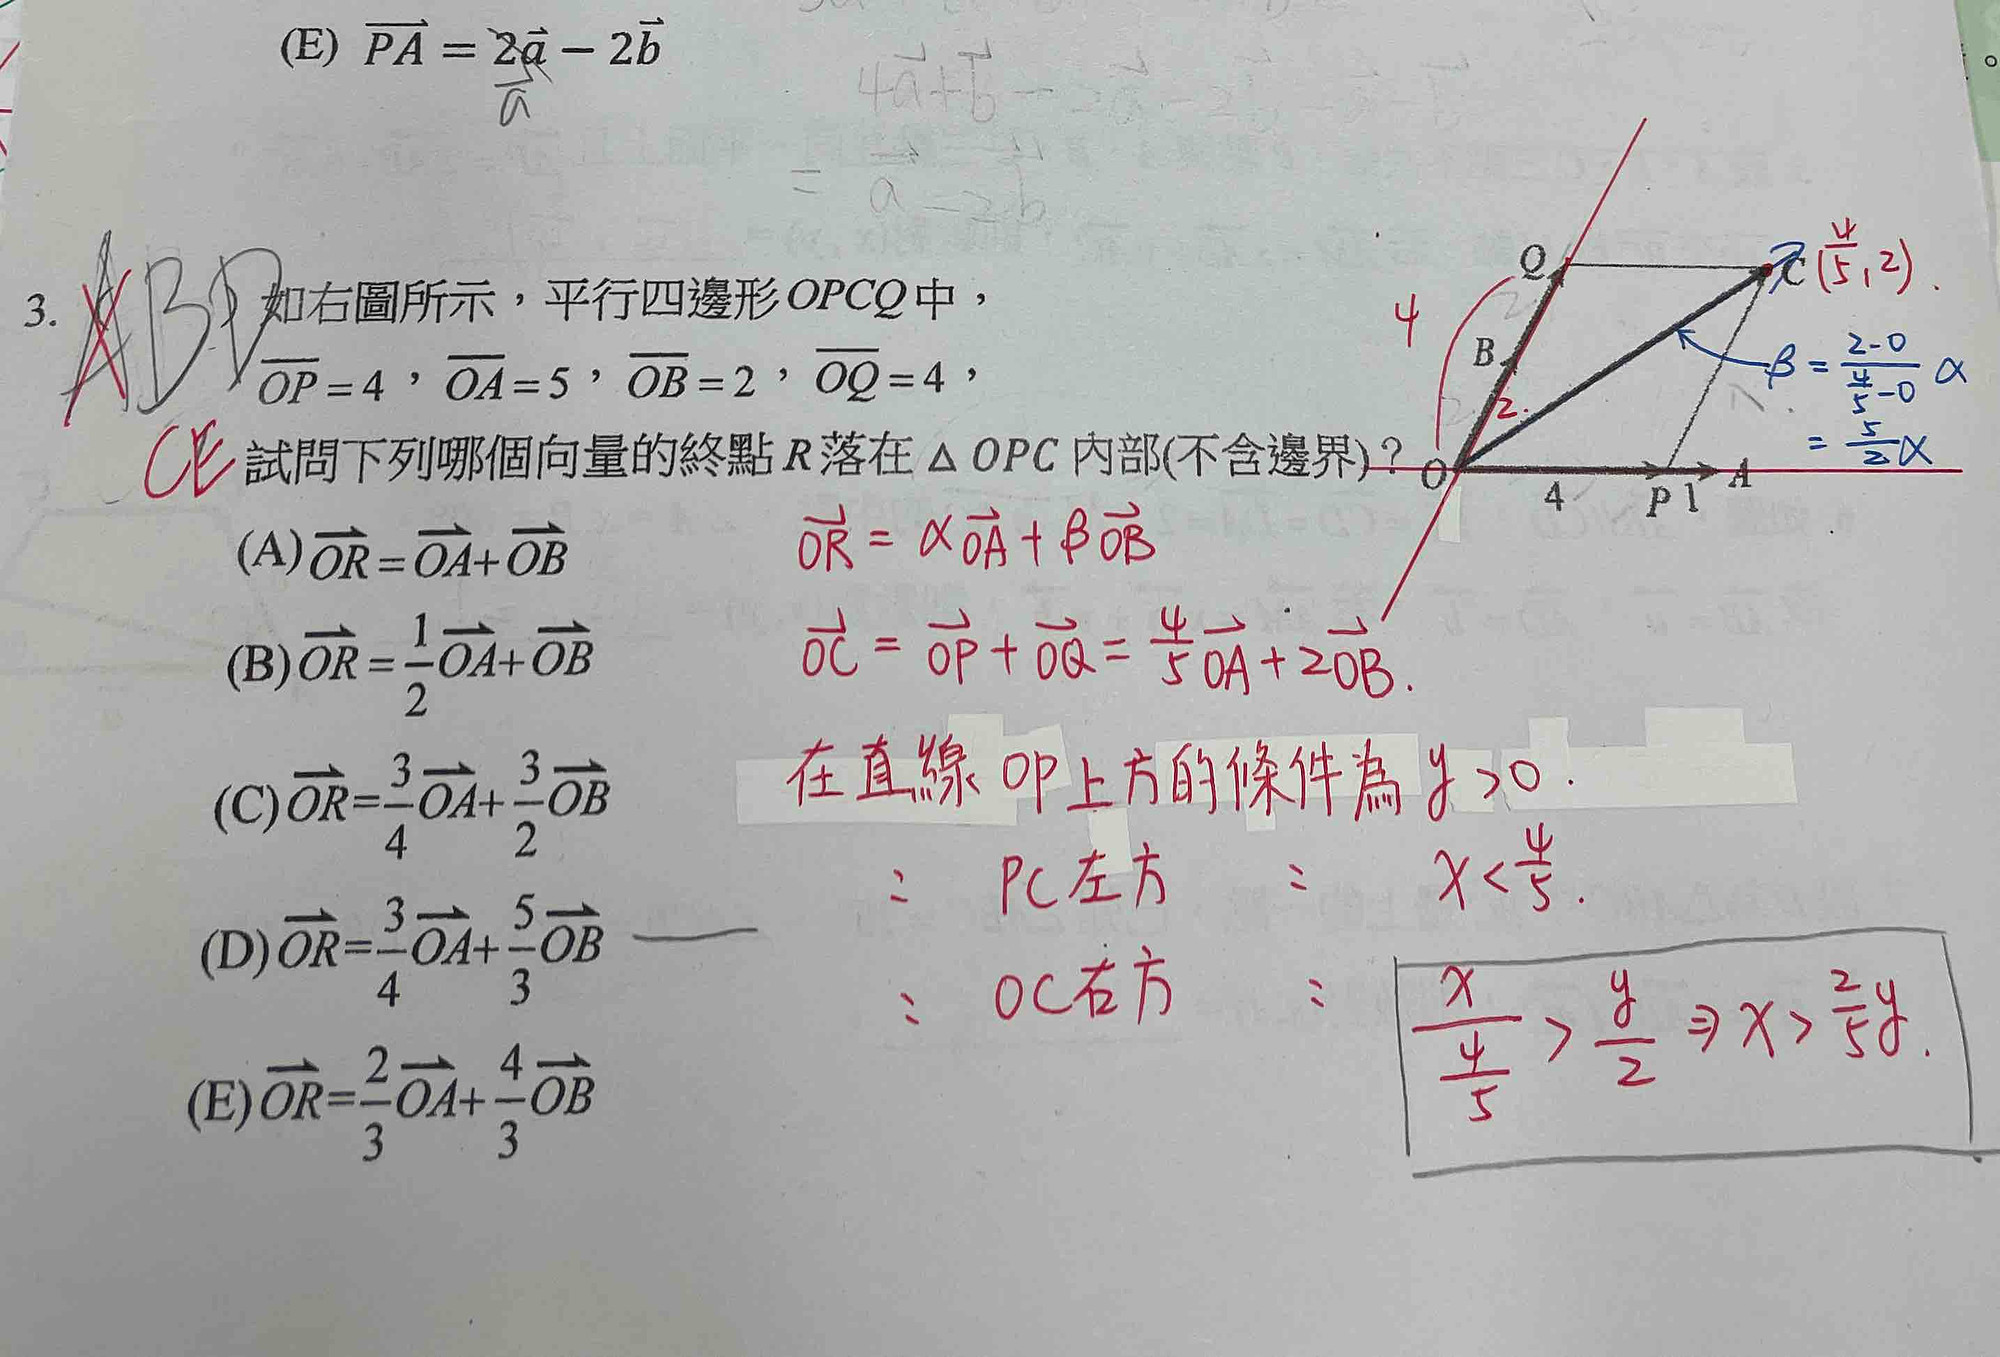 (E) PA = 2a − 2b
a
4a+b−2a−2b
= a−2b
3. ABD 如右圖所示，平行四邊形OPCQ中，
OP=4，OA=5，OB=2，OQ=4，
CE 試問下列哪個向量的終點R落在△OPC內部(不含邊界)？
(A) OR=OA+OB
(B) OR=1/2OA+OB
(C) OR=3/4OA+3/2OB
(D) OR=3/4OA+5/3OB
(E) OR=2/3OA+4/3OB
Q
C (4/5, 2).
4
B
2.
β = (2-0)/(4/5-0) α
= 5/2 α
O
4
P 1
A
OR = αOA + βOB
OC = OP + OQ = 4/5 OA + 2OB.
在直線 OP上方的條件為 y>0.
： PC左方 ： x<4/5.
： OC右方 ： x/(4/5) > y/2 ⇒ x > 2/5 y.